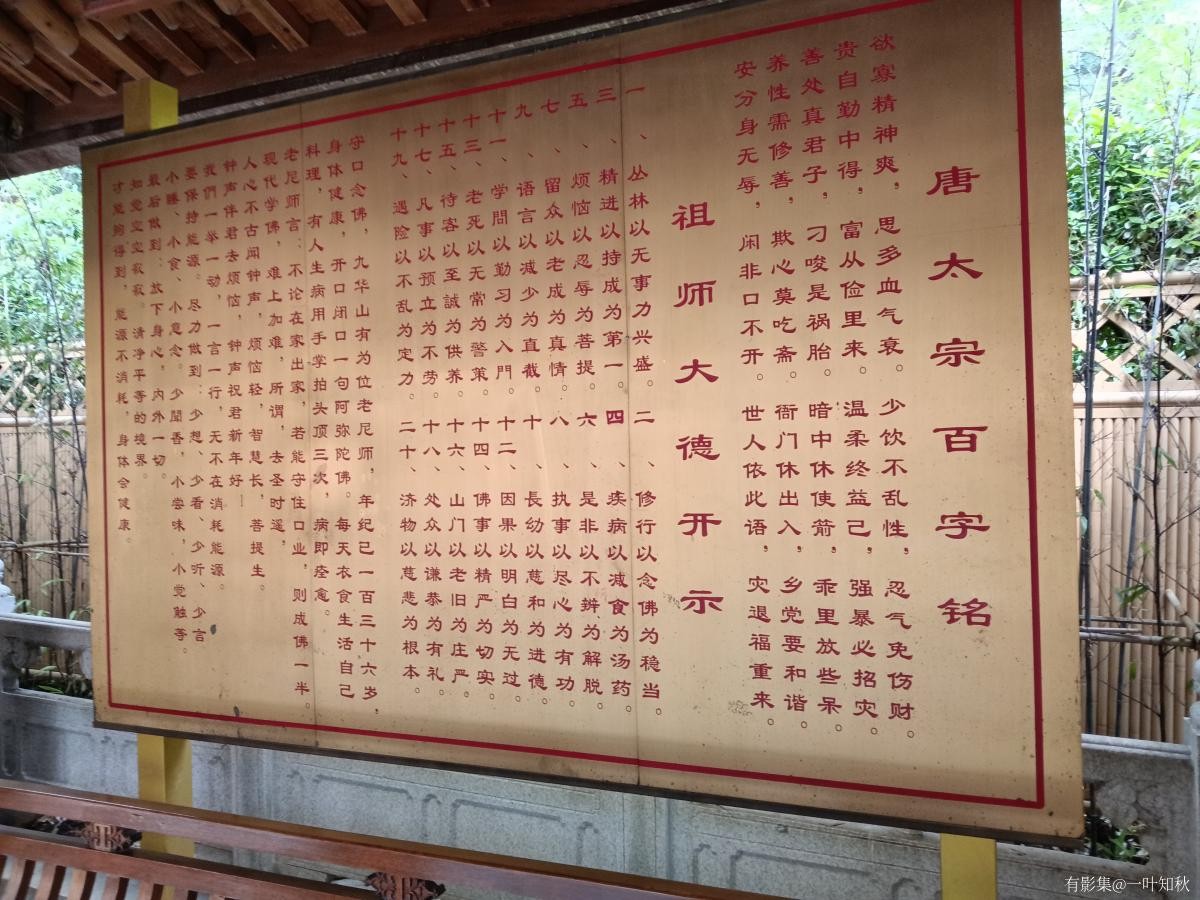 唐太宗百字铭
欲寡精神爽，思多血气衰。少饮不乱性，忍气免伤财。
贵自勤中得，富从俭里来。温柔终益己，强暴必招灾。
善处真君子，刁唆是祸胎。暗中休使箭，乖里放些呆。
养性需修善，欺心莫吃斋。衙门休出入，乡党要和谐。
安分身无辱，闲非口不开。世人依此语，灾退福重来。
祖师大德开示
一、丛林以无事力兴盛。二、修行以念佛为稳当。
三、精进以持成为第一。四、疾病以减食为汤药。
五、烦恼以忍辱为菩提。六、是非以不辨为解脱。
七、留众以老成为真情。八、执事以尽心为有功。
九、语言以减少为直截。十、長幼以慈和为进德。
十一、学問以勤习为入門。十二、因果以明白为无过。
十三、老死以无常为警策。十四、佛事以精严为切实。
十五、待客以至誠为供养。十六、山门以老旧为庄严。
十七、凡事以预立为不劳。十八、处众以谦恭为有礼。
十九、遇险以不乱为定力。二十、济物以慈悲为根本。
守口念佛，九华山有为位老尼师，年纪已一百三十六岁，
身体健康，开口闭口一句阿弥陀佛。每天衣食生活自己
料理，有人生病用手掌拍头顶三次，病即痊愈。
老尼师言：不论在家出家，若能守住口业，则成佛一半。
现代学佛，难上加难，所谓，去圣时遥，
人心不古闻钟声，烦恼轻，智慧长，菩提生。
钟声伴君去烦恼，钟声祝君新年好！
我們一举一动，一言一行，无不在消耗能源。
要保持能源。尽力做到：少想、少看、少听、少言
小睡、小食、小意念。少聞香，小尝味，小觉触等。
最后做到：放下身心，内外一切。
知觉空空寂寂。清净平等的境界。
才能夠得到，能源不消耗，身体会健康。
有影集@一叶知秋